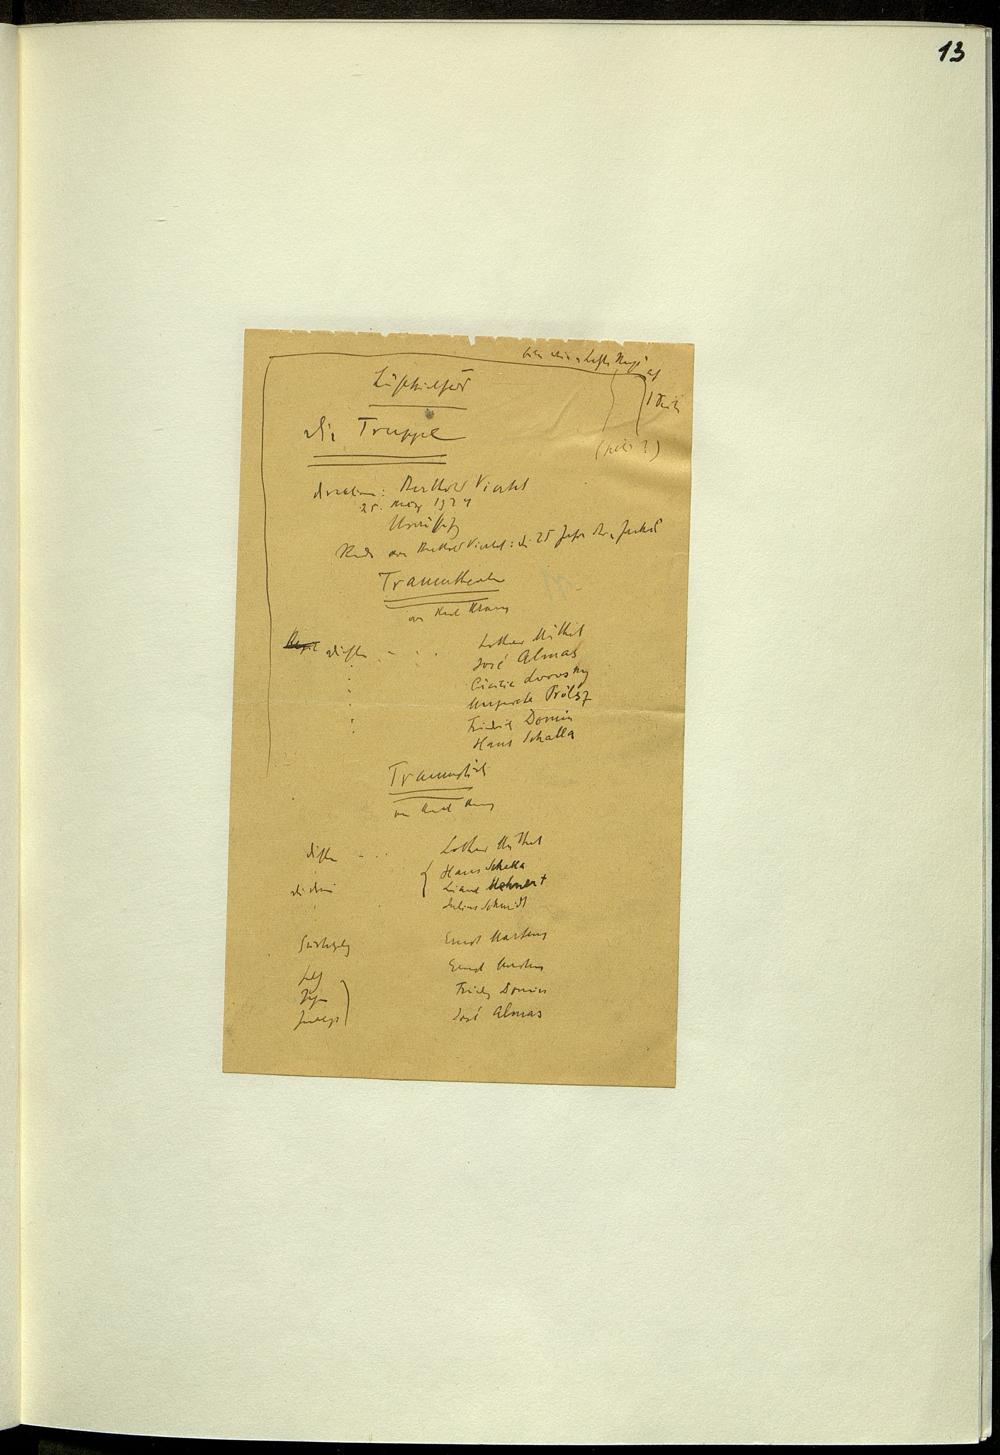 13
1 Seite
Lustspielhaus
Die Truppe
Direktion: Berthold Viertel
25. März 1924
Uraufführung
Rede von Berthold Viertel: die 25 Jahre der Fackel
Traumtheater
von Karl Kraus
Dichter . . . Lothar Müthel
José Almas
Cäcilie Lvovsky
Margarete Prölsz
Friedrich Domin
Hans Schalla
Traumstück
von Karl Kraus
Dichter . . . Lothar Müthel
Hans Schalla
Liane Mehnert
Julius Schmidt
Ernst Martens
Ernst Martens
Friedrich Domin
José Almas